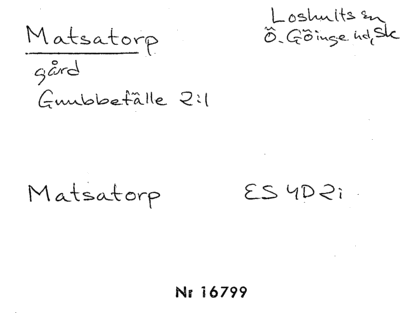 Matsatorp
Loshults sn
Ö. Göinge hd, Sk
gård
Gnubbefälle 2:1
Matsatorp
ES 4D2i
Nr 16799